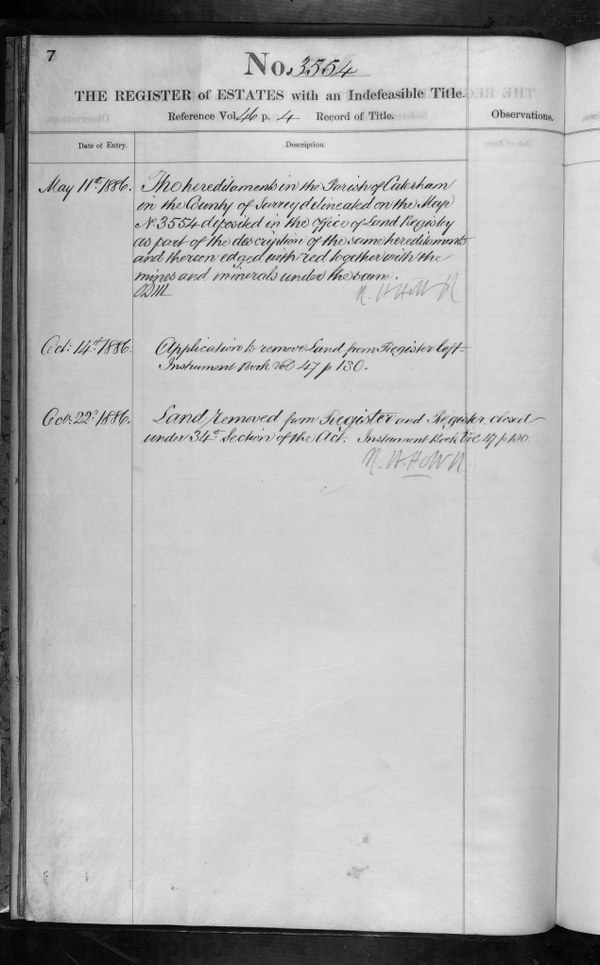 7
No. 3554
THE REGISTER of ESTATES with an Indefeasible Title.
Reference Vol. 46 p. 4 Record of Title.
Observations.
Date of Entry.
Description.
May 11th 1886.
The hereditaments in the Parish of Caterham
in the County of Surrey delineated on the Map
No 3554 deposited in the Office of Land Registry
as part of the description of the same hereditaments
and thereon edged with red together with the
mines and minerals under the same.
Oct: 14th 1886.
Application to remove Land from Register left
Instrument Book vol 47 p 130.
Oct: 22d 1886.
Land removed from Register and Register closed
under 34th Section of the Act. Instrument Book Vol 47 p 130